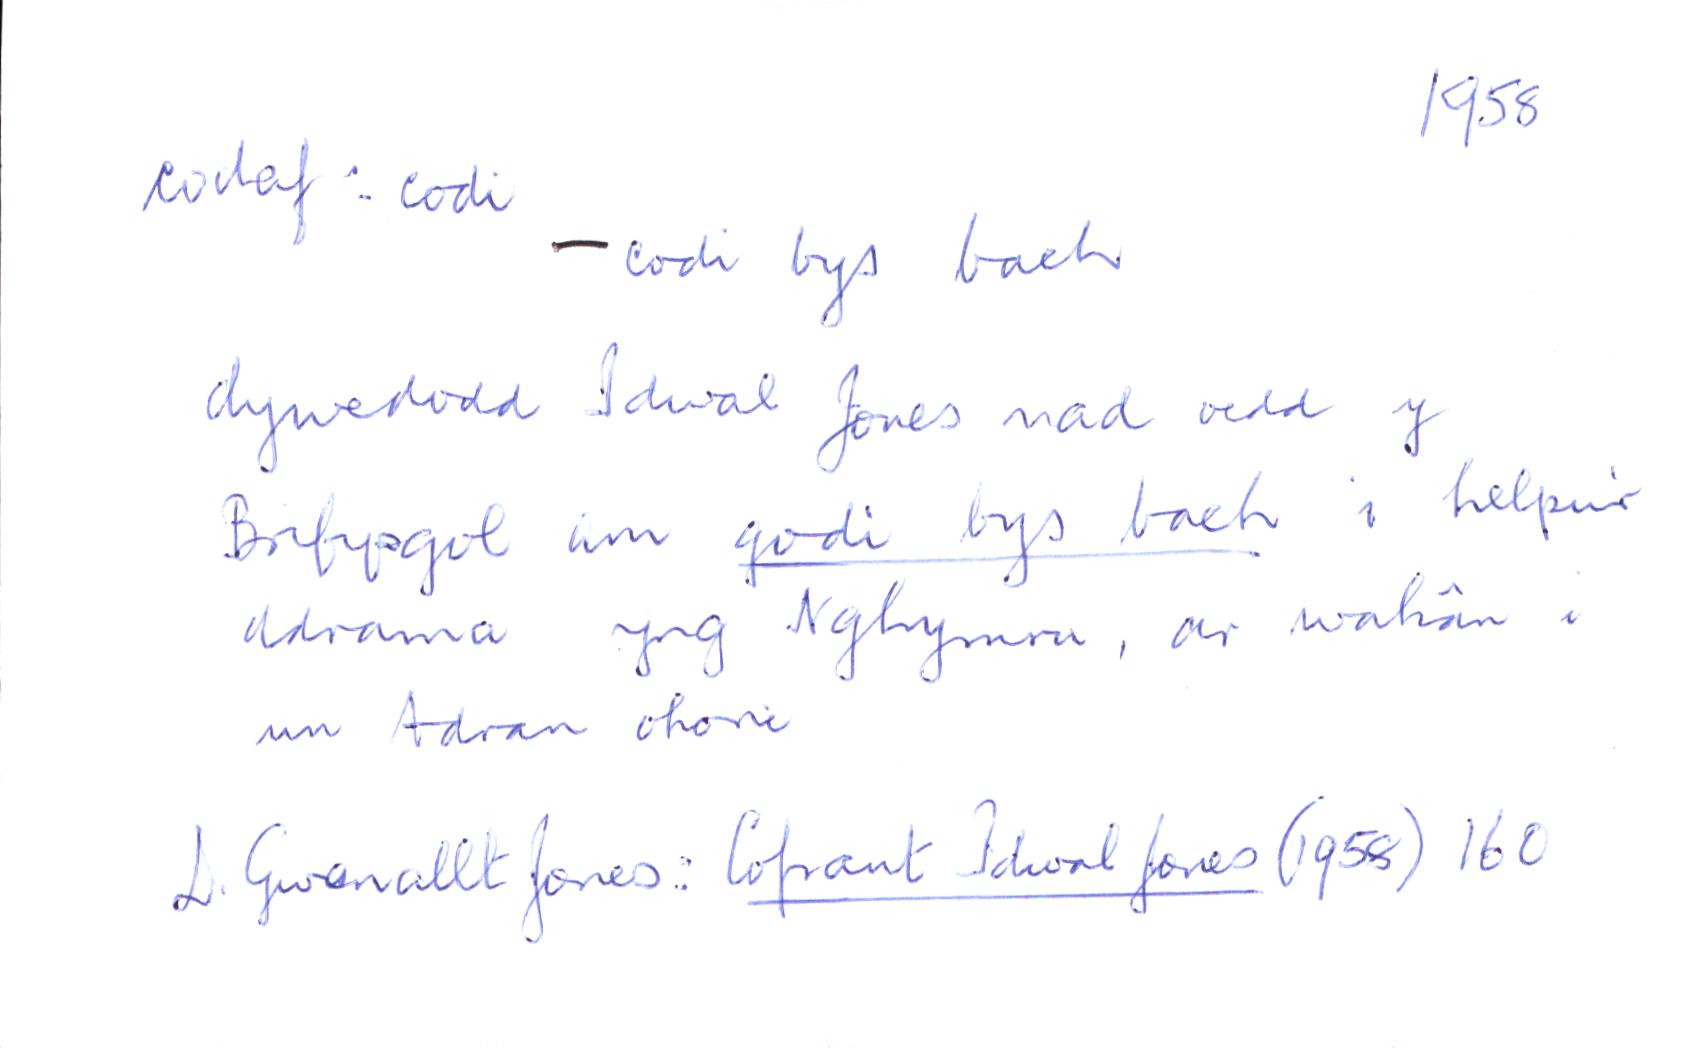 1958
codaf : codi
— codi bys bach
dywedodd Idwal Jones nad oedd y
Brifysgol am godi bys bach i helpu'r
ddrama yng Nghymru, ar wahân i
un Adran ohoni
D. Gwenallt Jones: Cofiant Idwal Jones (1958) 160